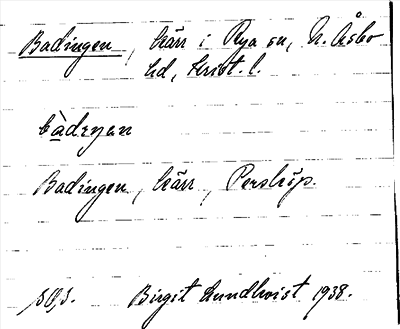 Badingen, kärr i Rya sn, N. Åsbo
hd, Krist. l.
bàdeŋan
Badingen, kärr, Perstorp.
Birgit Lundkvist 1938.